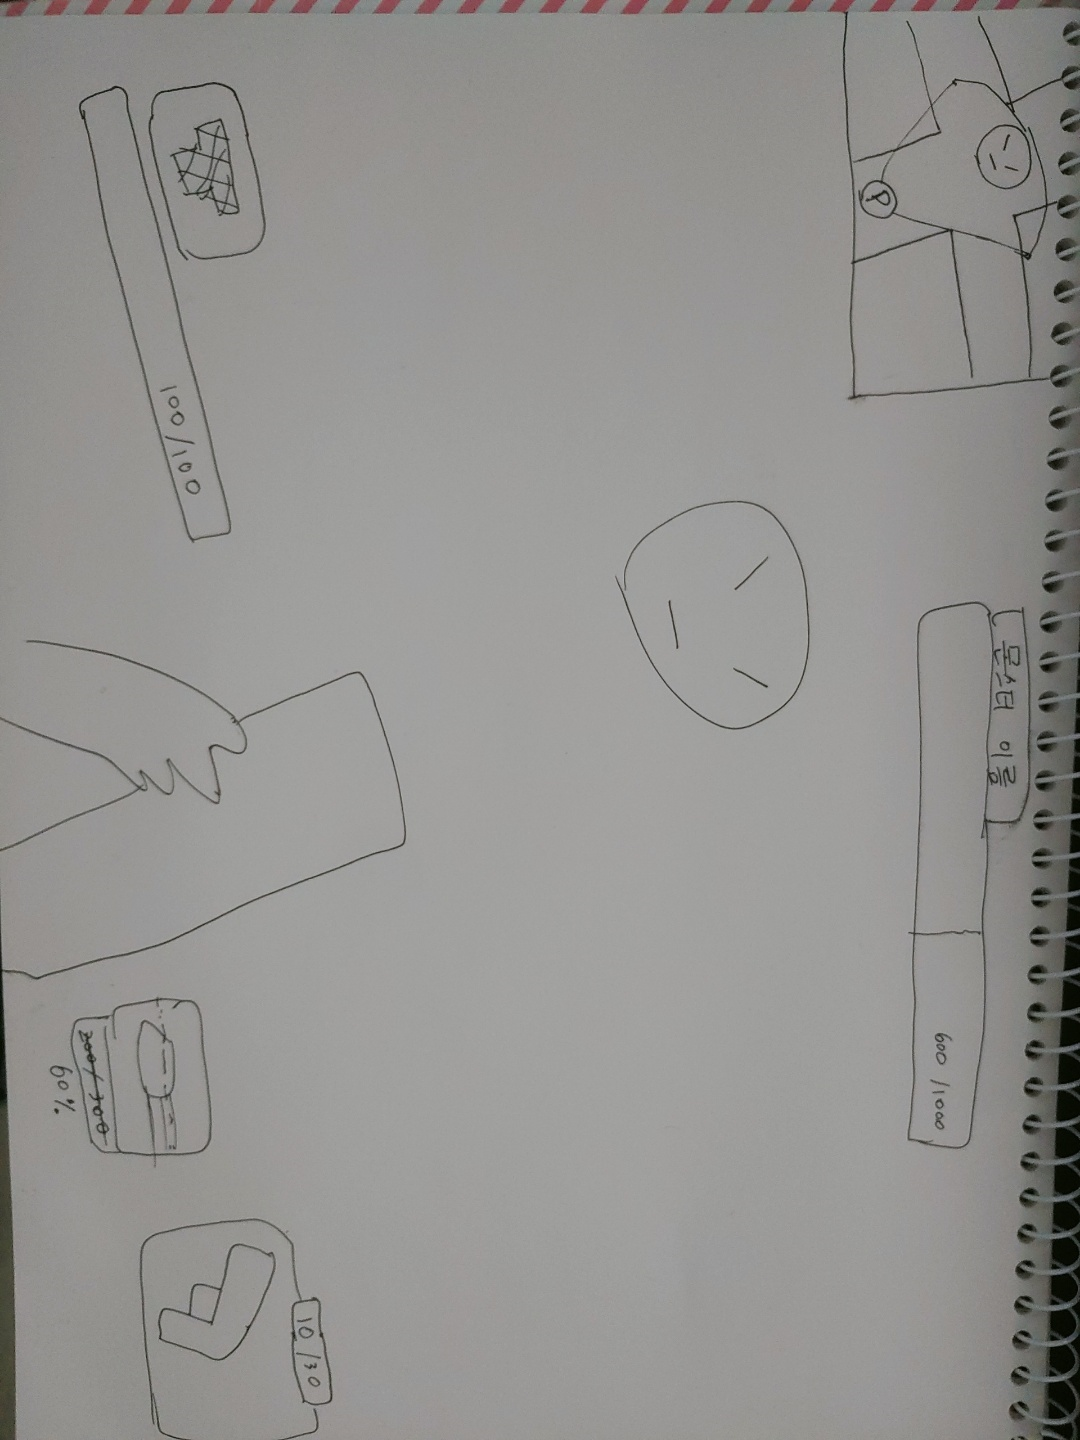 P
몬스터 이름
600/1000
100/100
200/300
60%
10/30